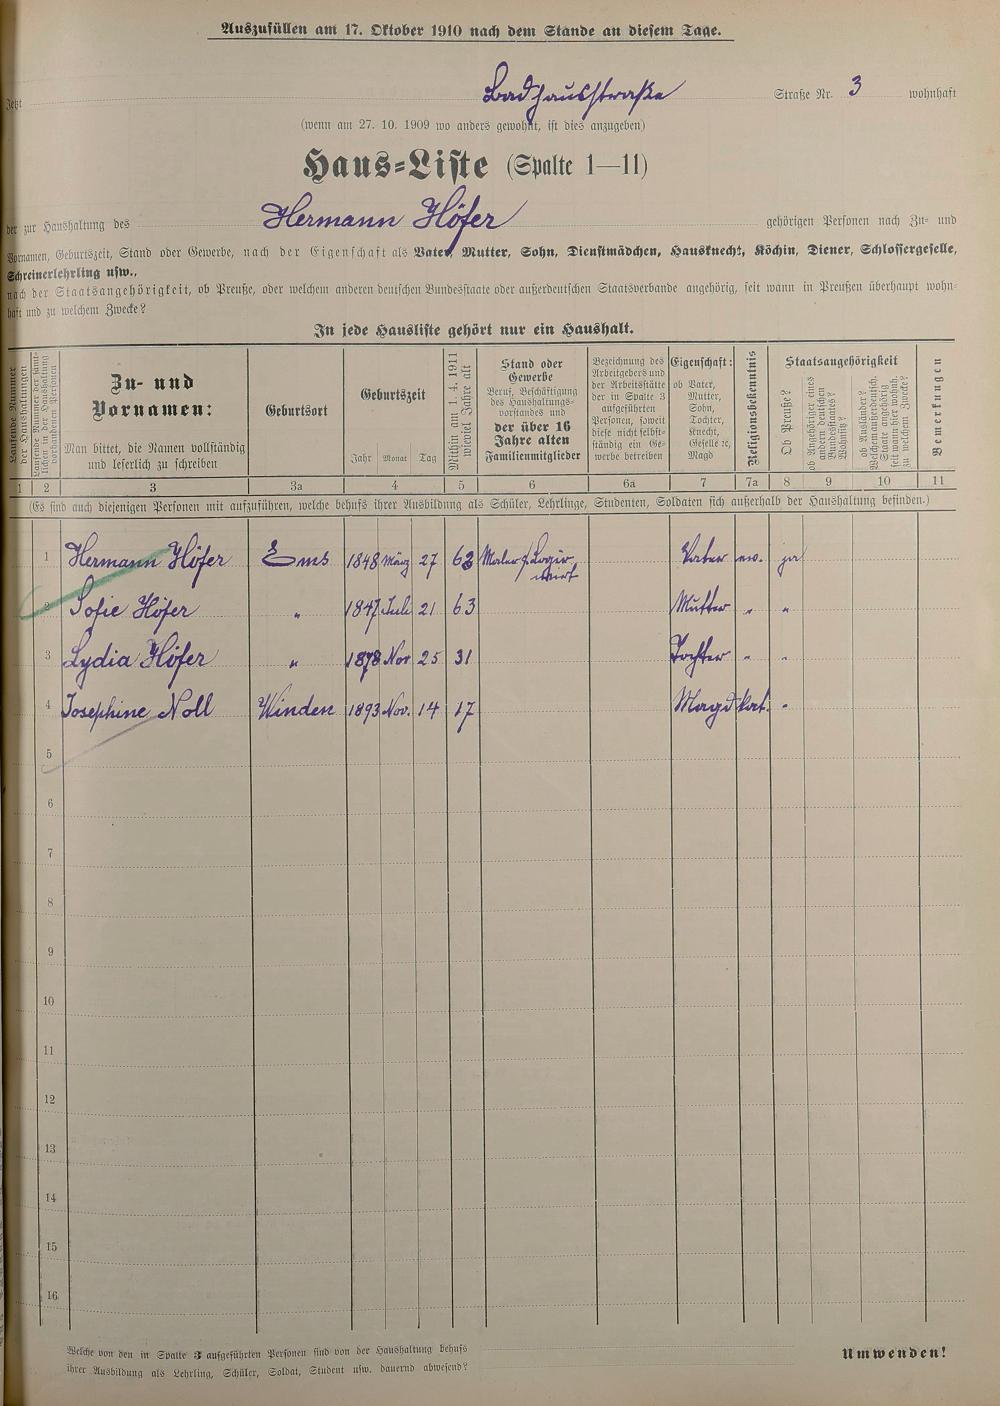 Auszufüllen am 17. Oktober 1910 nach dem Stande an diesem Tage.
Jetzt Badhausstraße Straße Nr. 3 wohnhaft
(wenn am 27. 10. 1909 wo anders gewohnt, ist dies anzugeben)
Haus-Liste (Spalte 1—11)
der zur Haushaltung des Hermann Höfer gehörigen Personen nach Zu- und
Vornamen, Geburtszeit, Stand oder Gewerbe, nach der Eigenschaft als Vater, Mutter, Sohn, Dienstmädchen, Hausknecht, Köchin, Diener, Schlossergeselle,
Schreinerlehrling usw.,
nach der Staatsangehörigkeit, ob Preuße, oder welchem anderen deutschen Bundesstaate oder außerdeutschen Staatsverbande angehörig, seit wann in Preußen überhaupt wohn-
haft und zu welchem Zwecke?
In jede Hausliste gehört nur ein Haushalt.
Laufende Nummer
der Haushaltungen
Laufende Nummer der sämt-
lichen in der Haushaltung
vorhandenen Personen
Zu- und
Vornamen:
Man bittet, die Namen vollständig
und leserlich zu schreiben
Geburtsort
Geburtszeit
Jahr Monat Tag
Mithin am 1. 4. 1911
wieviel Jahre alt
Stand oder
Gewerbe
Beruf, Beschäftigung
des Haushaltungs-
vorstandes und
der über 16
Jahre alten
Familienmitglieder
Bezeichnung des
Arbeitgebers und
der Arbeitsstätte
der in Spalte 3
aufgeführten
Personen, soweit
diese nicht selbst-
ständig ein Ge-
werbe betreiben
Eigenschaft:
ob Vater,
Mutter,
Sohn,
Tochter,
Knecht,
Geselle ec,
Magd
Religionsbekenntnis
Staatsangehörigkeit
Ob Preuße?
ob Angehöriger eines
andern deutschen
Bundesstaates?
Wohnsitz?
ob Ausländer?
Welchem außerdeutsch.
Staate angehörig
seit wann hier wohnh.
zu welchem Zwecke?
Bemerkungen
1 2 3 3a 4 5 6 6a 7 7a 8 9 10 11
(Es sind auch diejenigen Personen mit aufzuführen, welche behufs ihrer Ausbildung als Schüler, Lehrlinge, Studenten, Soldaten sich außerhalb der Haushaltung befinden.)
1 Hermann Höfer Ems 1848 März 27 63 Maler Logir Vater ev. ja
wirt
2 Sofie Höfer " 1847 Juli 21 63 Mutter " "
3 Lydia Höfer " 1878 Nov 25 31 Tochter " "
4 Josephine Noll Winden 1893 Nov. 14 17 Magd kat. "
5
6
7
8
9
10
11
12
13
14
15
16
Welche von den in Spalte 3 aufgeführten Personen sind von der Haushaltung behufs
ihrer Ausbildung als Lehrling, Schüler, Soldat, Student usw. dauernd abwesend?
Umwenden!